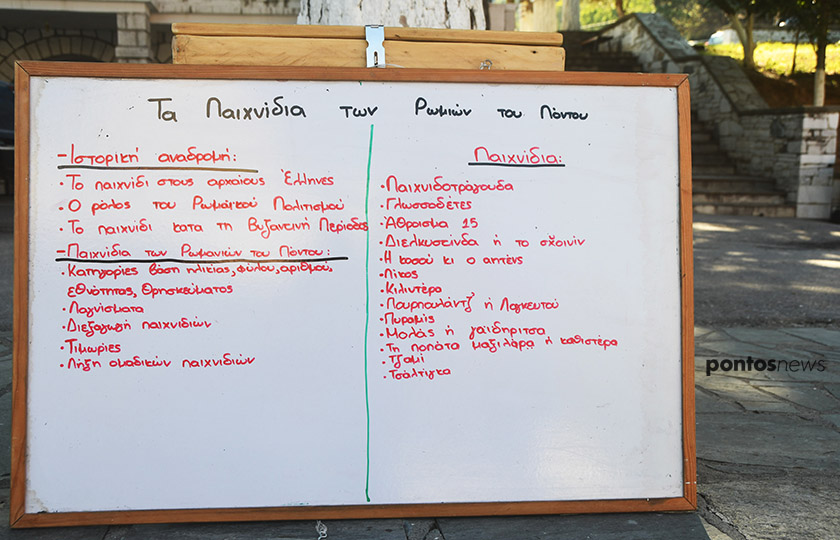 Τα Παιχνίδια των Ρωμιών του Πόντου
- Ιστορική αναδρομή:
· Το παιχνίδι στους αρχαίους Έλληνες
· Ο ρόλος του Ρωμαϊκού Πολιτισμού
· Το παιχνίδι κατα τη Βυζαντινή Περίοδος
- Παιχνίδια των Ρωμανιών του Πόντου:
· Κατηγορίες βάση ηλικίας, φύλου, αριθμού,
εθνότητας, Θρησκεύματος
· Λαγνίσματα
· Διεξαγωγή παιχνιδιών
· Τιμωρίες
· Λήξη ομαδικών παιχνιδιών
Παιχνίδια:
· Παιχνιδοτράγουδα
· Γλωσσοδέτες
· Άθροισμα 15
· Διελκυστίνδα ή το σχ̌οινίν
· Η κοσού κι ο αητένς
· Λίκος
· Κιλιντέρα
· Πουρπουλάντζ̌ ή Λαγκευτού
· Πυραμίς
· Μολάς ή γαϊδηρίτσα
· Τη ποπάτα μαξιλάρα ή καθιστέρα
· Τζαμί
· Τσαλτίγκα
pontosnews